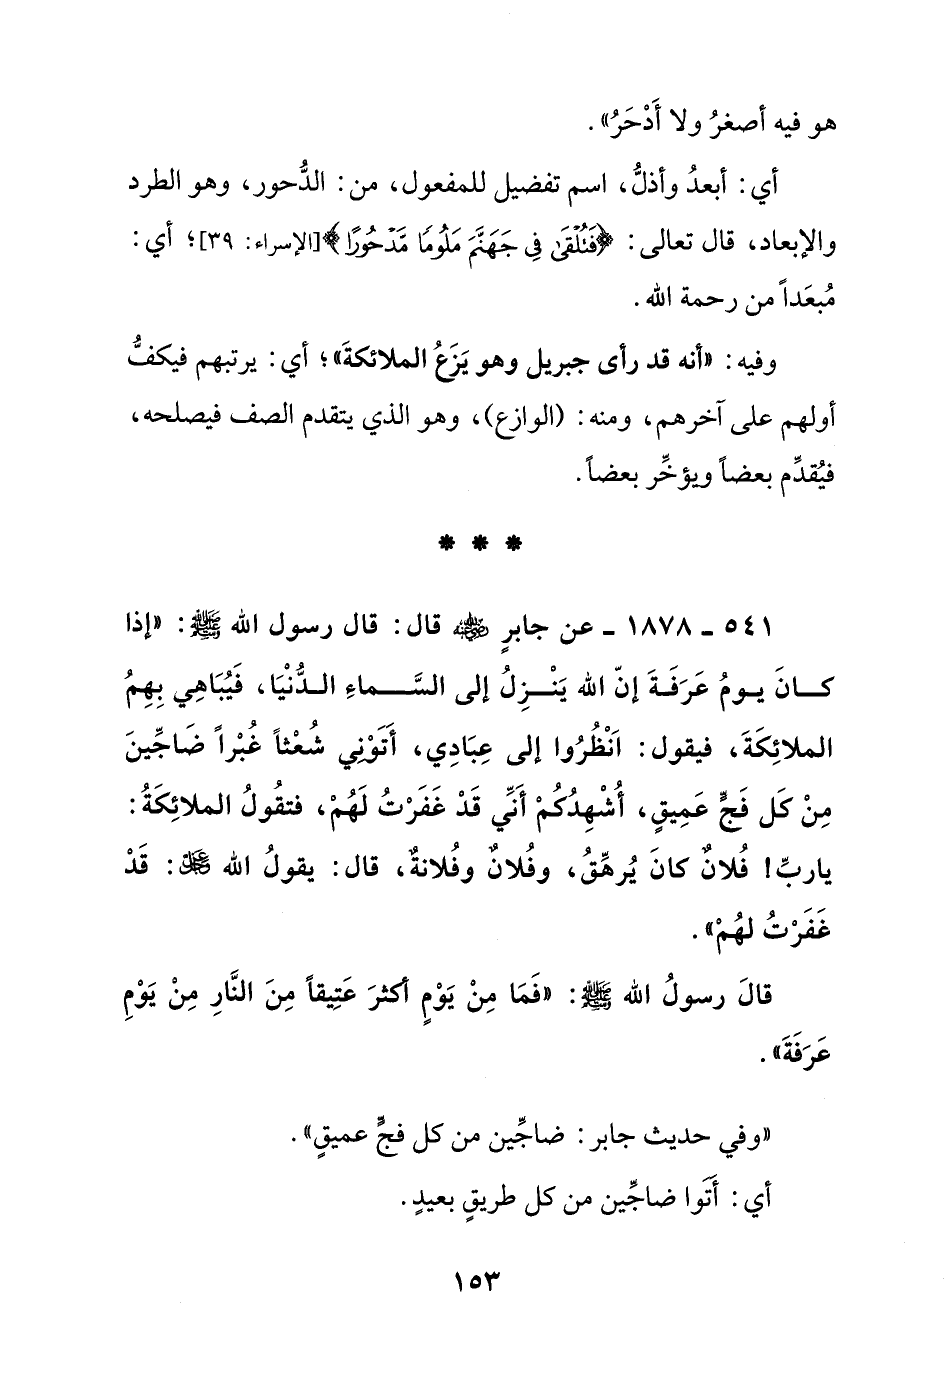 هو فيه أصغرُ ولا أَدْحَرُ».
أي: أبعدُ وأذلُّ، اسم تفضيل للمفعول، من: الدُّحور، وهو الطرد
والإبعاد، قال تعالى: ﴿فَتُلْقَىٰ فِي جَهَنَّمَ مَلُومًا مَّدْحُورًا﴾[الإسراء: ٣٩]؛ أي:
مُبعَداً من رحمة الله.
وفيه: «أنه قد رأى جبريل وهو يَزَعُ الملائكةَ»؛ أي: يرتبهم فيكفُّ
أولهم على آخرهم، ومنه: (الوازع)، وهو الذي يتقدم الصف فيصلحه،
فيُقدِّم بعضاً ويؤخِّر بعضاً.
* * *
٥٤١ ـ ١٨٧٨ ـ عن جابرٍ رضي الله عنه قال: قال رسول الله ﷺ: «إذا
كـان يـومُ عَرَفَـةَ إنّ الله يَنْـزِلُ إلى السَّـمـاءِ الـدُّنْيَا، فَيُبَاهِي بِهِمُ
الملائِكَةَ، فيقول: اَنْظُرُوا إلى عِبَادِي، أَتَوْنِي شُعْثاً غُبْراً ضَاجِّينَ
مِنْ كَل فَجٍّ عَمِيقٍ، أُشْهِدُكُمْ أَنِّي قَدْ غَفَرْتُ لَهُمْ، فتقُولُ الملائِكَةُ:
ياربِّ! فُلانٌ كانَ يُرهِّقُ، وفُلانٌ وفُلانةٌ، قال: يقولُ الله ﷻ: قَدْ
غَفَرْتُ لهُمْ».
قالَ رسولُ الله ﷺ: «فَمَا مِنْ يَوْمٍ أكثرَ عَتِيقاً مِنَ النَّارِ مِنْ يَوْمِ
عَرَفَةَ».
«وفي حديث جابر: ضاجِّين من كل فجٍّ عميقٍ».
أي: أَتَوا ضاجِّين من كل طريقٍ بعيدٍ.
١٥٣